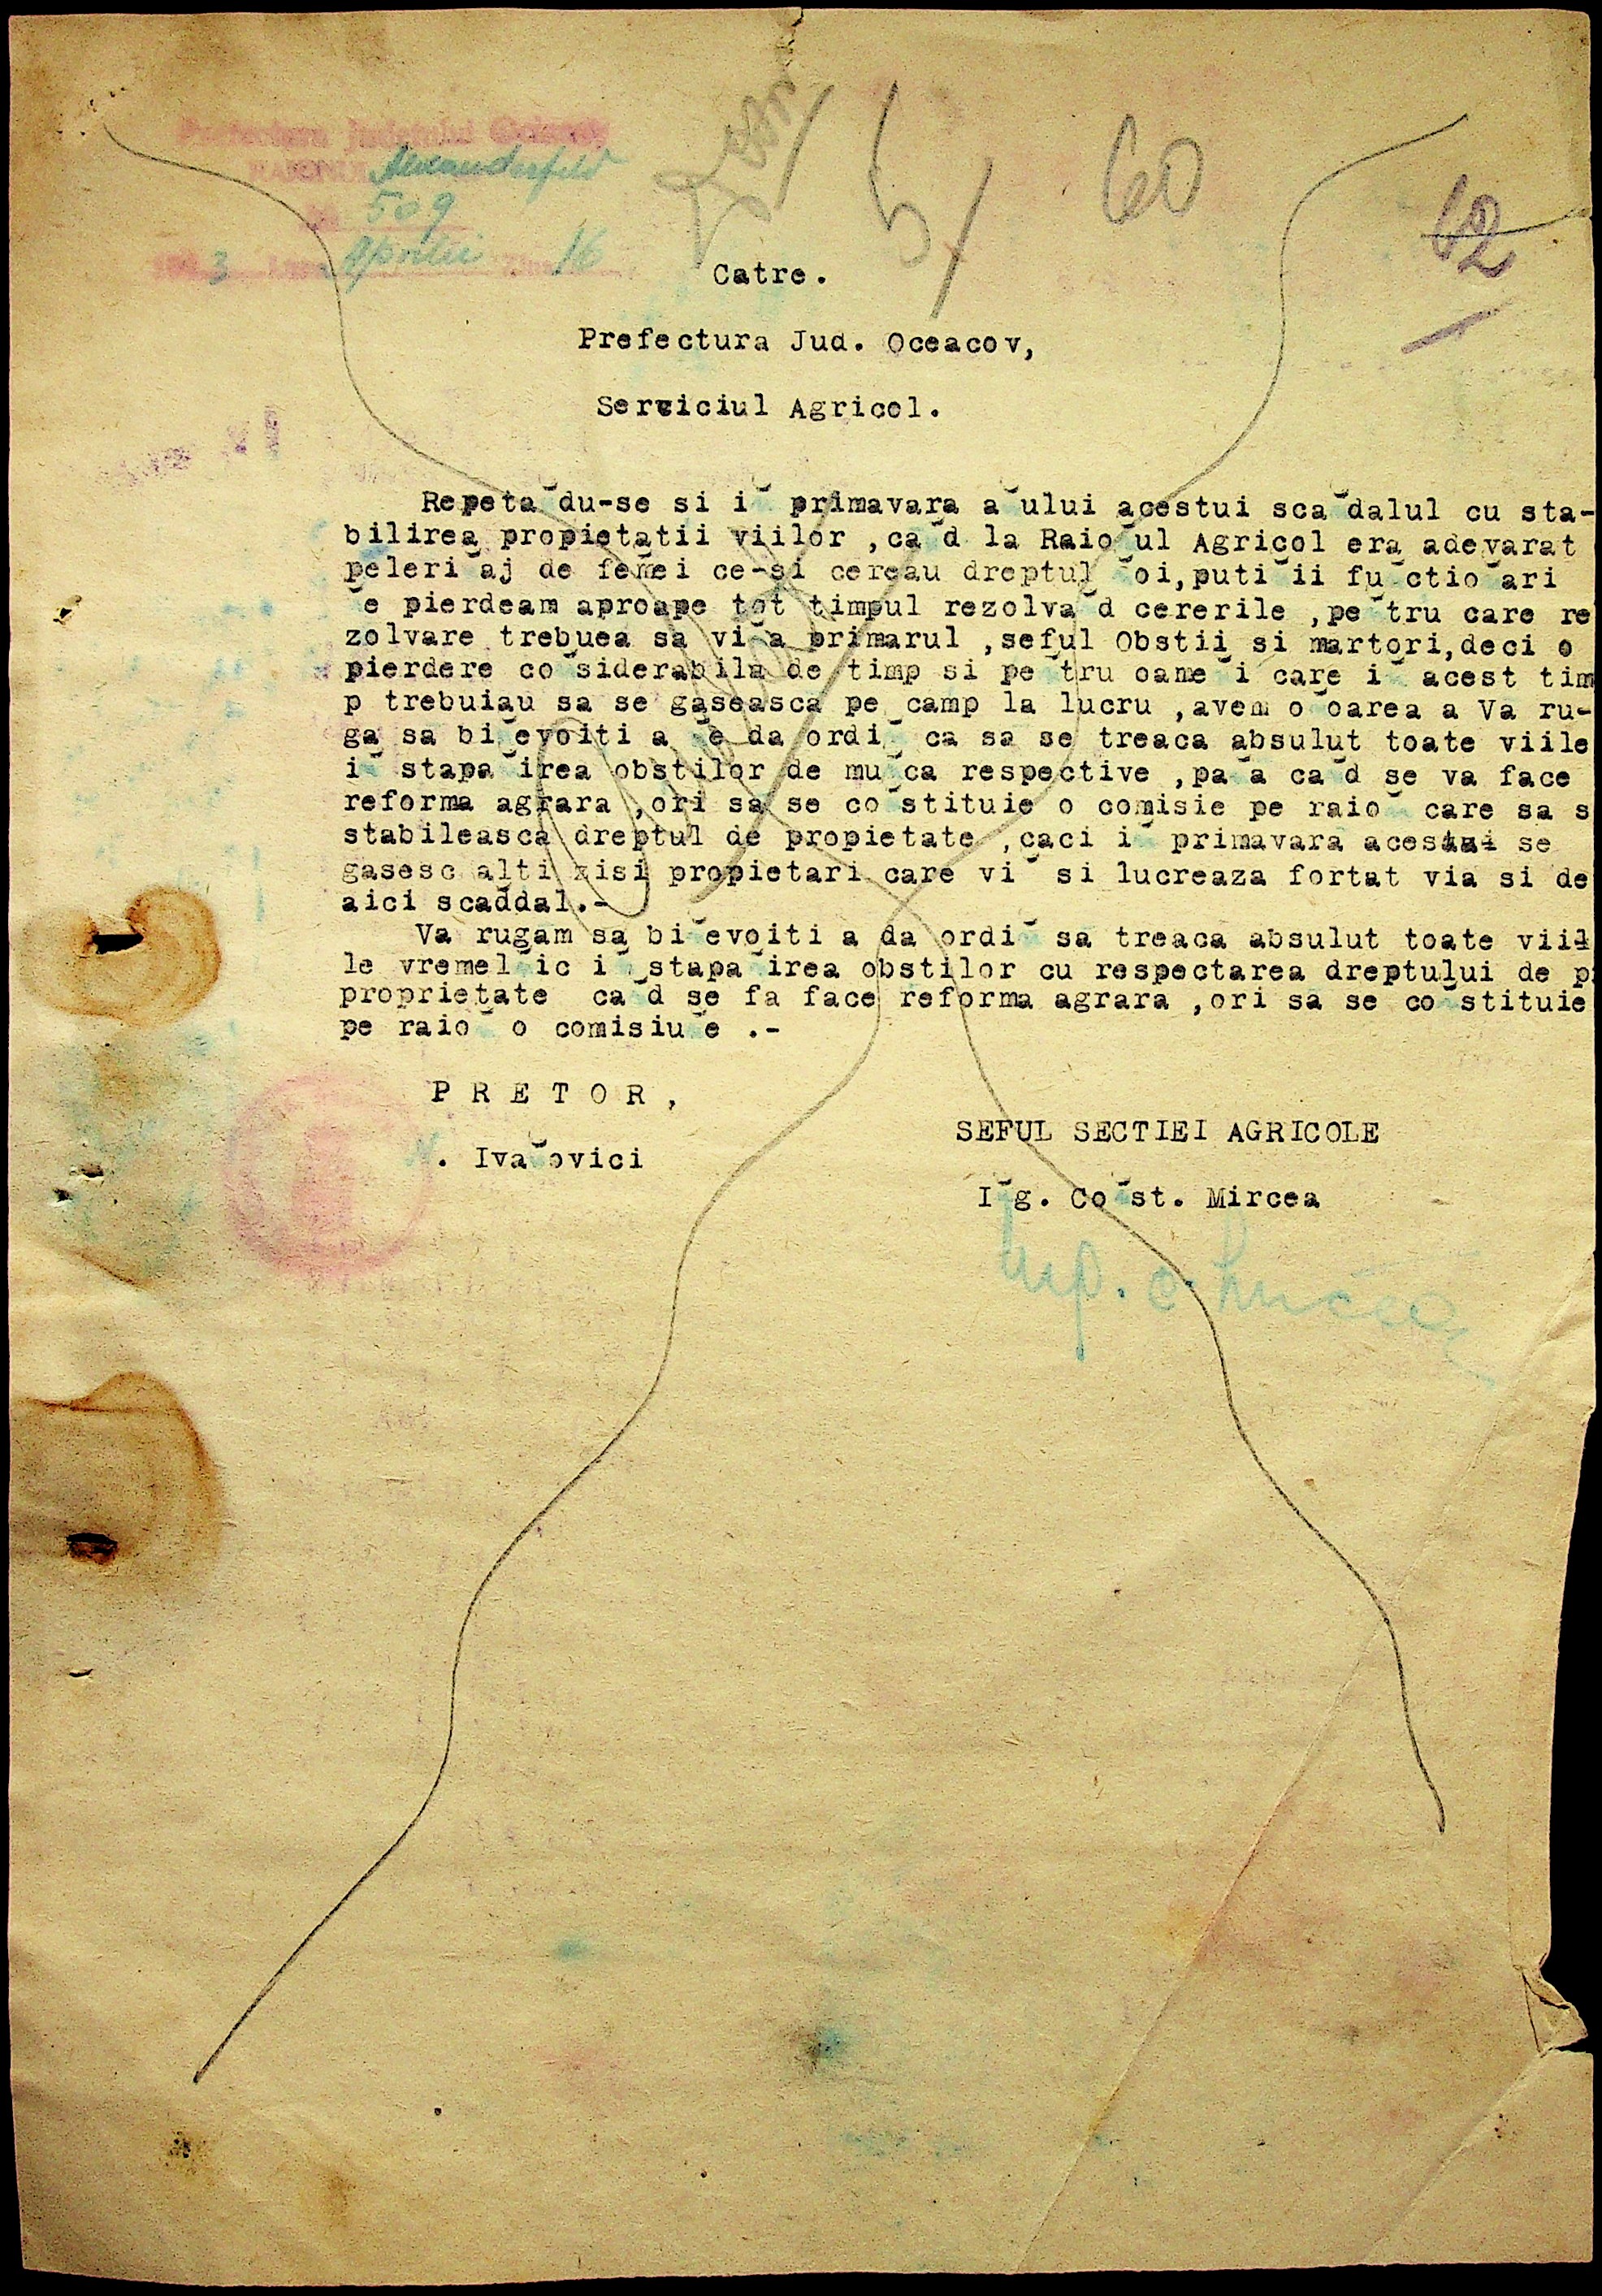 Prefectura Judetului Oceacov
RAIONUL Alexanderfeld
No 509
194 3 Luna Aprilie Ziua 16
5
60
62
Catre.
Prefectura Jud. Oceacov,
Serviciul Agricol.
Repetandu-se si in primavara anului acestui scandalul cu sta-
bilirea propietatii viilor ,cand la Raionul Agricol era adevarat
pelerinaj de femei ce-si cereau dreptul noi,putinii functionari
ne pierdeam aproape tot timpul rezolvand cererile ,pentru care re
zolvare trebuea sa vina primarul ,seful Obstii si martori,deci o
pierdere considerabila de timp si pentru oameni care in acest tim
p trebuiau sa se gaseasca pe camp la lucru ,avem onoarea a Va ru-
ga sa binevoiti a ne da ordin ca sa se treaca absulut toate viile
in stapanirea obstilor de munca respective ,pana cand se va face
reforma agrara ,ori sa se constituie o comisie pe raion care sa s
stabileasca dreptul de propietate ,caci in primavara acestui se
gasesc alti zisi propietari care vin si lucreaza fortat via si de
aici scaddal.-
Va rugam sa binevoiti a da ordin sa treaca absulut toate viil
le vremelnic in stapanirea obstilor cu respectarea dreptului de p
proprietate cand se fa face reforma agrara ,ori sa se constituie
pe raion o comisiune .-
P R E T O R ,
N. Ivanovici
SEFUL SECTIEI AGRICOLE
Ing. Const. Mircea
Ing. C. Mircea